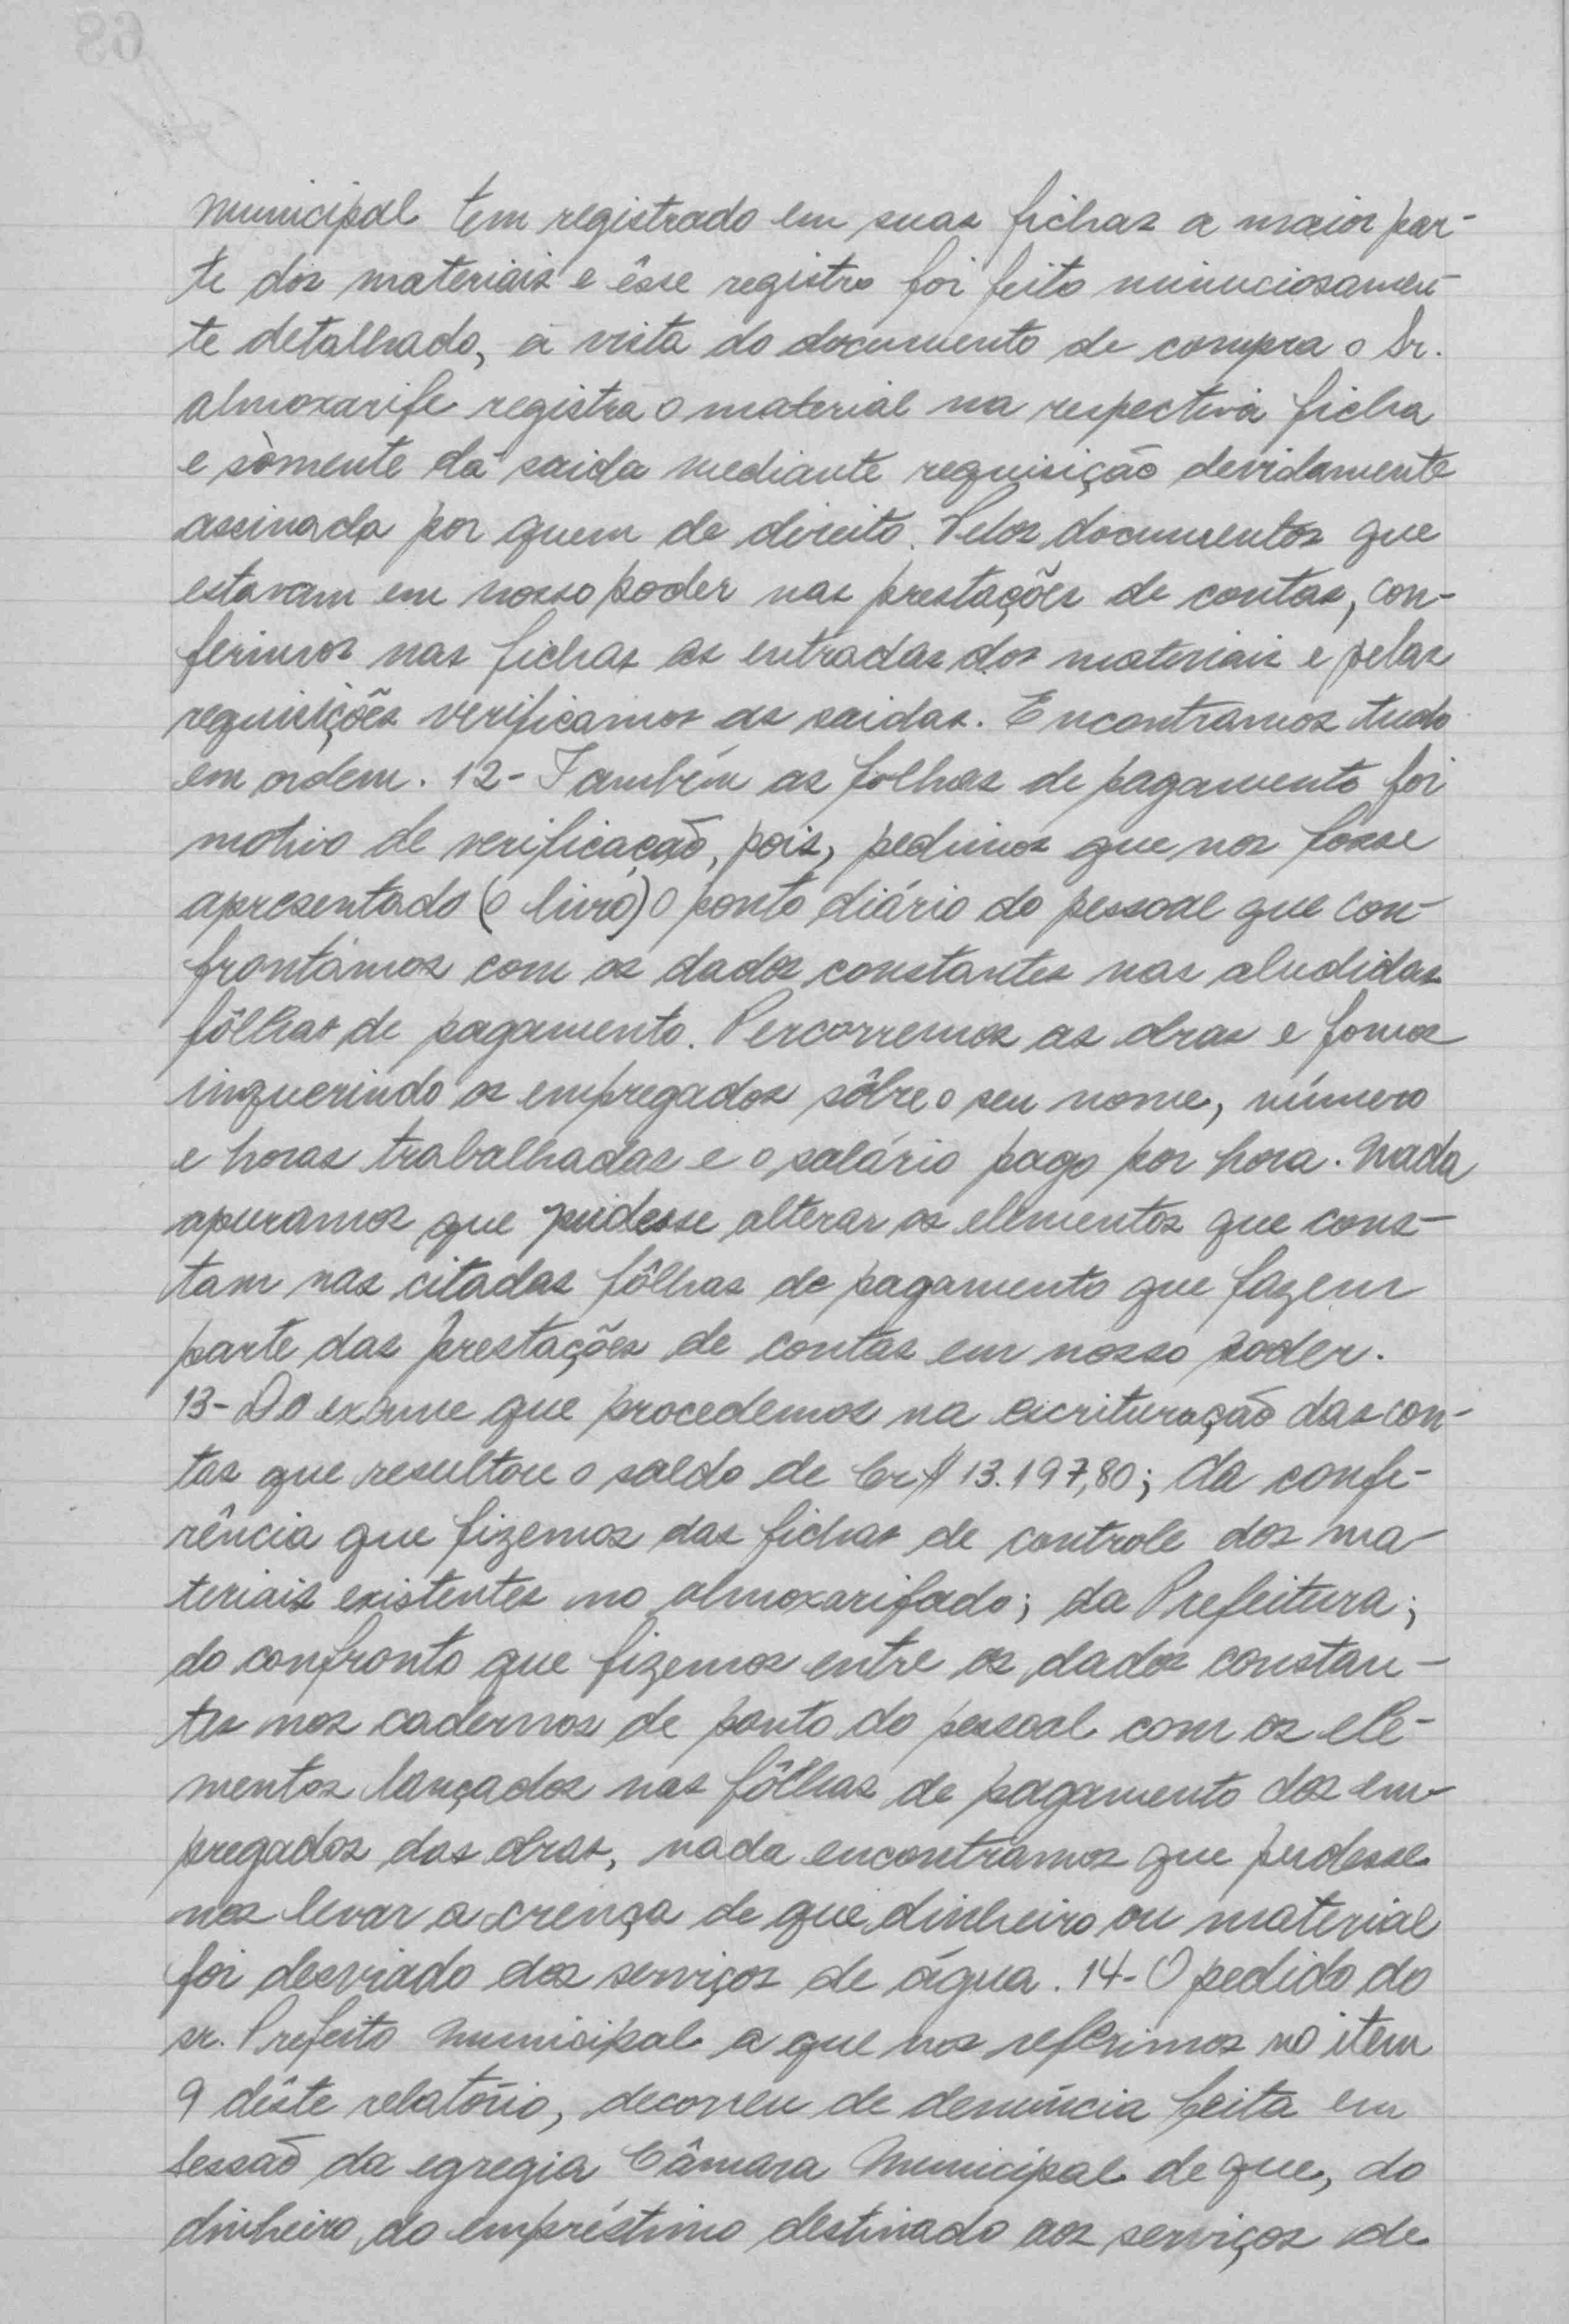 municipal tem registrado em suas fichas a maior par-
te dos materiais e êsse registro foi feito minuciosamen-
te detalhado, à vista do documento de compra o Sr.
almoxarife registra o material na respectiva ficha
e sòmente dá saida mediante requisição devidamente
assinada por quem de direito. Pelos documentos que
estavam em nosso poder nas prestações de contas, con-
ferimos nas fichas as entradas dos materiais e pelas
requisições verificamos as saidas. Encontramos tudo
em ordem. 12- Também as folhas de pagamento foi
motivo de verificação, pois, pedimos que nos fosse
apresentado (o livro) o ponto diário do pessoal que con-
frontámos com os dados constantes nas aludidas
fôlhas de pagamento. Percorremos as obras e fomos
inquerindo os empregados sôbre o seu nome, número
e horas trabalhadas e o salário pago por hora. Nada
apuramos que pudesse alterar os elementos que cons-
tam nas citadas fôlhas de pagamento que fazem
parte das prestações de contas em nosso poder.
13- Do exame que procedemos na escrituração das con-
tas que resultou o saldo de Cr$ 13.197,80; da confe-
rência que fizemos das fichas de controle dos ma-
teriais existentes no almoxarifado; da Prefeitura;
do confronto que fizemos entre os dados constan-
tes nos cadernos de ponto do pessoal com os ele-
mentos lançados nas fôlhas de pagamento dos em-
pregados das obras, nada encontramos que pudesse
nos levar a crença de que dinheiro ou material
foi desviado dos serviços de água. 14- O pedido do
sr. Prefeito Municipal a que nos referimos no item
9 dêste relatório, decorreu de denúncia feita em
sessão da egregia Câmara Municipal de que, do
dinheiro do empréstimo destinado aos serviços de